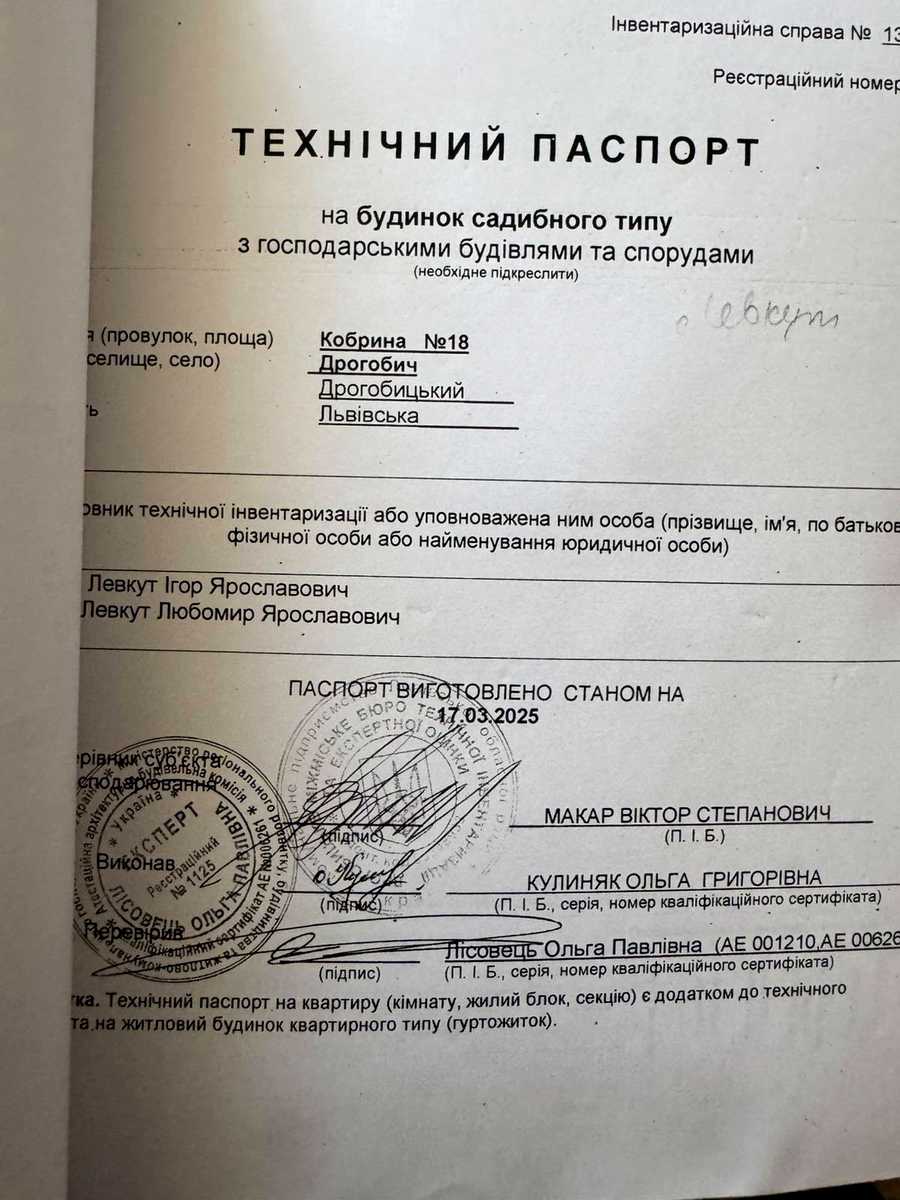 Інвентаризаційна справа № 13
Реєстраційний номер
ТЕХНІЧНИЙ ПАСПОРТ
на будинок садибного типу
з господарськими будівлями та спорудами
(необхідне підкреслити)
Левкут
я (провулок, площа) Кобрина №18
селище, село) Дрогобич
Дрогобицький
ть Львівська
овник технічної інвентаризації або уповноважена ним особа (прізвище, ім'я, по батьков
фізичної особи або найменування юридичної особи)
Левкут Ігор Ярославович
Левкут Любомир Ярославович
ПАСПОРТ ВИГОТОВЛЕНО СТАНОМ НА
17.03.2025
ерівник суб'єкта
сподарювання
МАКАР ВІКТОР СТЕПАНОВИЧ
(підпис) (П. І. Б.)
Виконав
КУЛИНЯК ОЛЬГА ГРИГОРІВНА
(підпис) (П. І. Б., серія, номер кваліфікаційного сертифіката)
Перевірив
Лісовець Ольга Павлівна (АЕ 001210,АЕ 00626
(підпис) (П. І. Б., серія, номер кваліфікаційного сертифіката)
тка. Технічний паспорт на квартиру (кімнату, жилий блок, секцію) є додатком до технічного
та на житловий будинок квартирного типу (гуртожиток).
Україна
ЕКСПЕРТ
Реєстраційний
№ 1125
ЛІСОВЕЦЬ ОЛЬГА ПАВЛІВНА